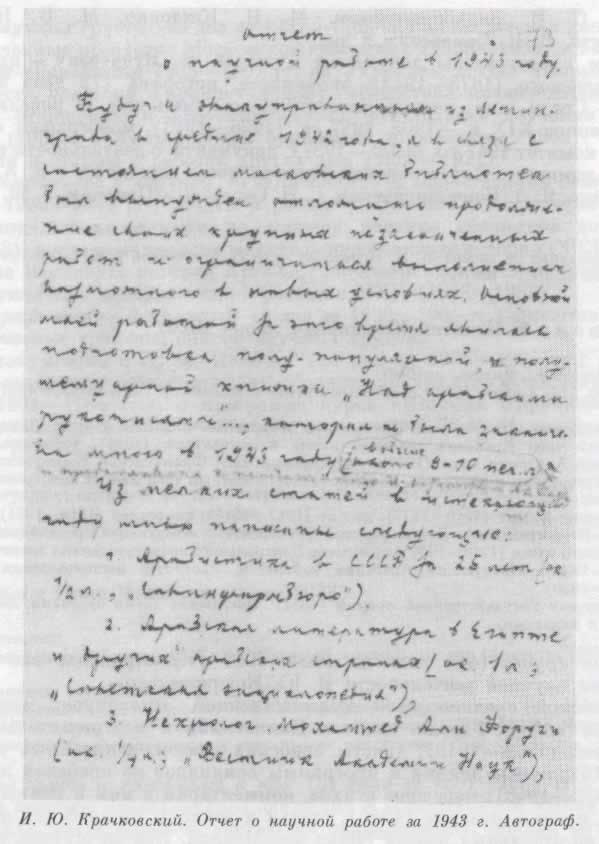 73
Отчет
о научной работе в 1943 году.
Будучи эвакуированным из Ленин-
града в средине 1942 года, я в связи с
состоянием московских библиотек
был вынужден отложить продолже-
ние своих крупных незаконченных
работ и ограничиться выполнением
возможного в новых условиях. Основной
моей работой за это время явилась
подготовка полу-популярной и полу-
мемуарной книжки „Над арабскими
рукописями"..., которая и была закон-
на много в 1943 году (около 9-10 печ. л.
в общем
и
Из мелких статей в истекшем
году мною написаны следующие:
1. Арабистика в СССР за 25 лет (ок.
1/2 л., „Совинформбюро"),
2. Арабская литература в Египте
и других арабских странах (ок. 1 л.;
„Советская энциклопедия"),
3. Некролог Мохаммед Али Форуги
(ок. 1/4 л.; „Вестник Академии Наук"),
И. Ю. Крачковский. Отчет о научной работе за 1943 г. Автограф.